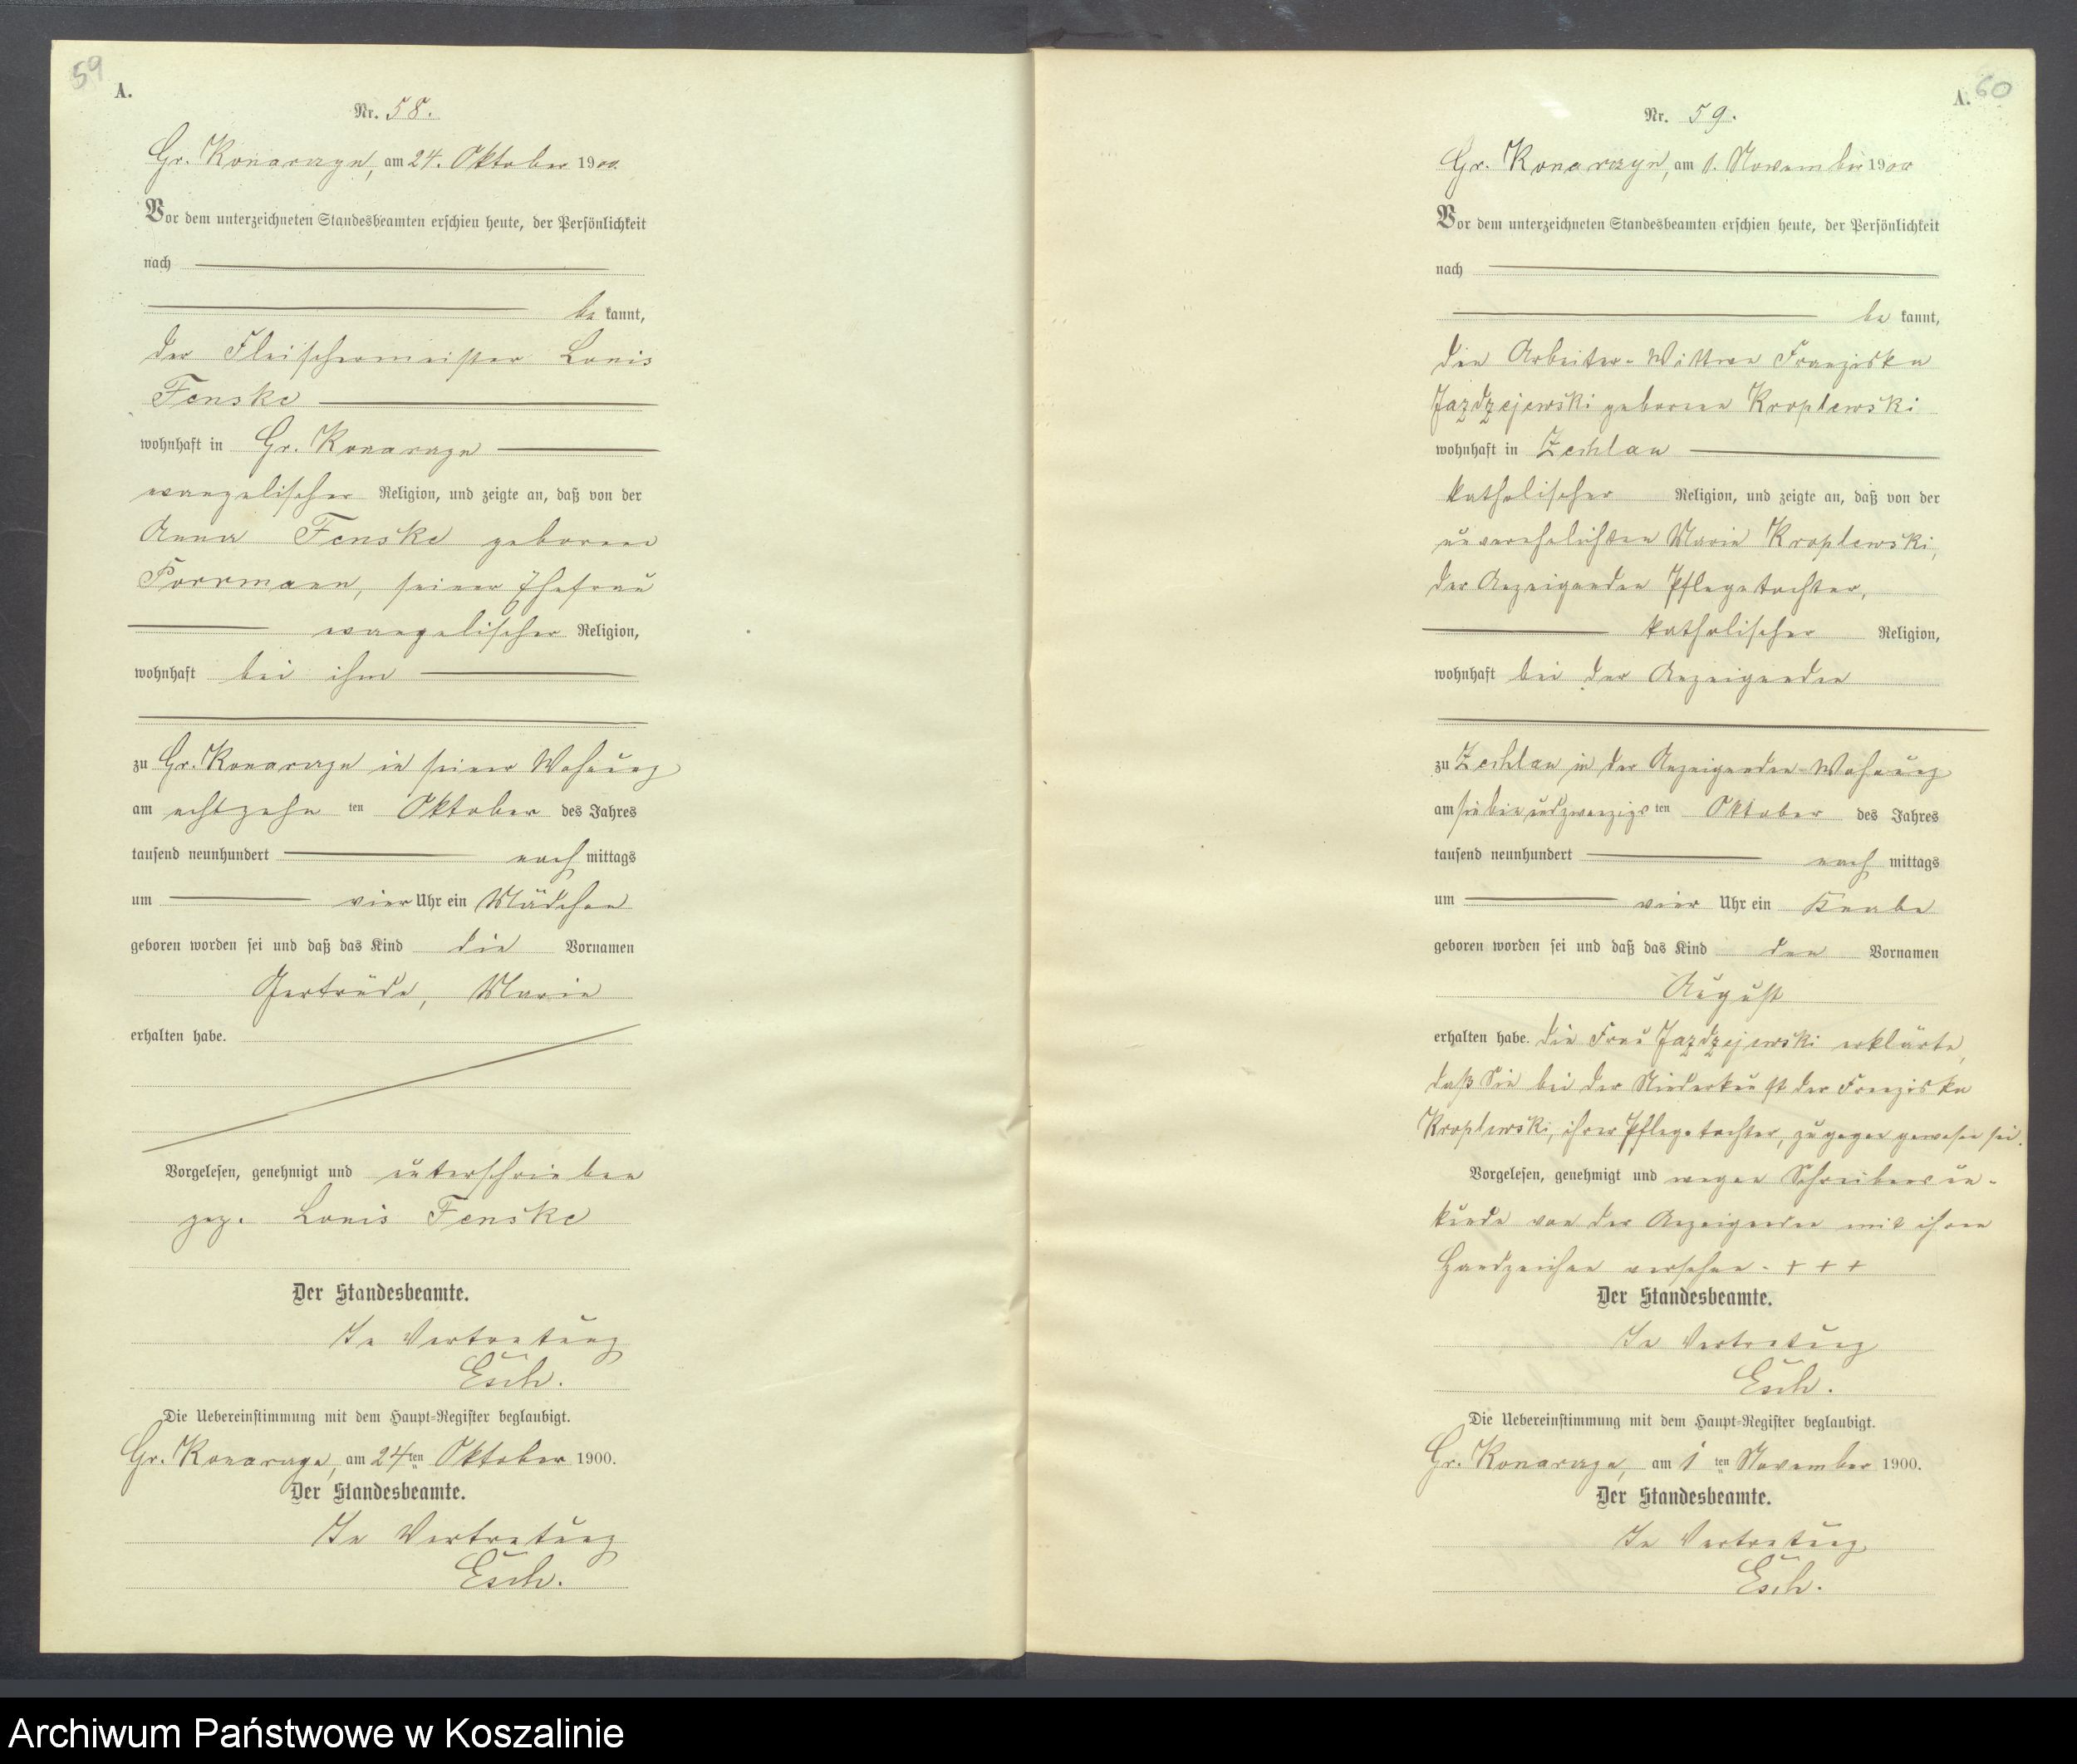 59
A.
Nr. 58.
Gr. Konarczyn, am 24. Oktober 1900.
Vor dem unterzeichneten Standesbeamten erschien heute, der Persönlichkeit
nach
be kannt,
der Fleischermeister Louis
Fenske
wohnhaft in Gr. Konarczyn
evangelischer Religion, und zeigte an, daß von der
Anna Fenske geborene
Porrmann, seiner Ehefrau
evangelischer Religion,
wohnhaft bei ihm
zu Gr. Konarczyn in seiner Wohnung
am achtzehn ten Oktober des Jahres
tausend neunhundert nach mittags
um vier Uhr ein Mädchen
geboren worden sei und daß das Kind die Vornamen
Gertrude, Marie
erhalten habe.
Vorgelesen, genehmigt und unterschrieben
gez. Louis Fenske
Der Standesbeamte.
In Vertretung
Esch.
Die Uebereinstimmung mit dem Haupt-Register beglaubigt.
Gr. Konarczyn, am 24ten Oktober 1900.
Der Standesbeamte.
In Vertretung
Esch.
60
A.
Nr. 59.
Gr. Konarczyn, am 1. November 1900
Vor dem unterzeichneten Standesbeamten erschien heute, der Persönlichkeit
nach
be kannt,
die Arbeiter-Wittwe Franziska
Jazdzejewski geborene Kroplewski
wohnhaft in Zechlau
katholischer Religion, und zeigte an, daß von der
unverehelichten Marie Kroplewski,
der Anzeigenden Pflegetochter,
katholischer Religion,
wohnhaft bei der Anzeigenden
zu Zechlau in der Anzeigenden Wohnung
am siebenundzwanzigs ten Oktober des Jahres
tausend neunhundert nach mittags
um vier Uhr ein Knabe
geboren worden sei und daß das Kind den Vornamen
August
erhalten habe. die Frau Jazdzejewski erklärte,
daß Sie bei der Niederkunft der Franziska
Kroplewski, ihrer Pflegetochter, zugegen gewesen sei.
Vorgelesen, genehmigt und wegen Schreibensun-
kunde von der Anzeigenden mit ihren
Handzeichen versehen. + + +
Der Standesbeamte.
In Vertretung
Esch.
Die Uebereinstimmung mit dem Haupt-Register beglaubigt.
Gr. Konarczyn, am 1 ten November 1900.
Der Standesbeamte.
In Vertretung
Esch.
Archiwum Państwowe w Koszalinie